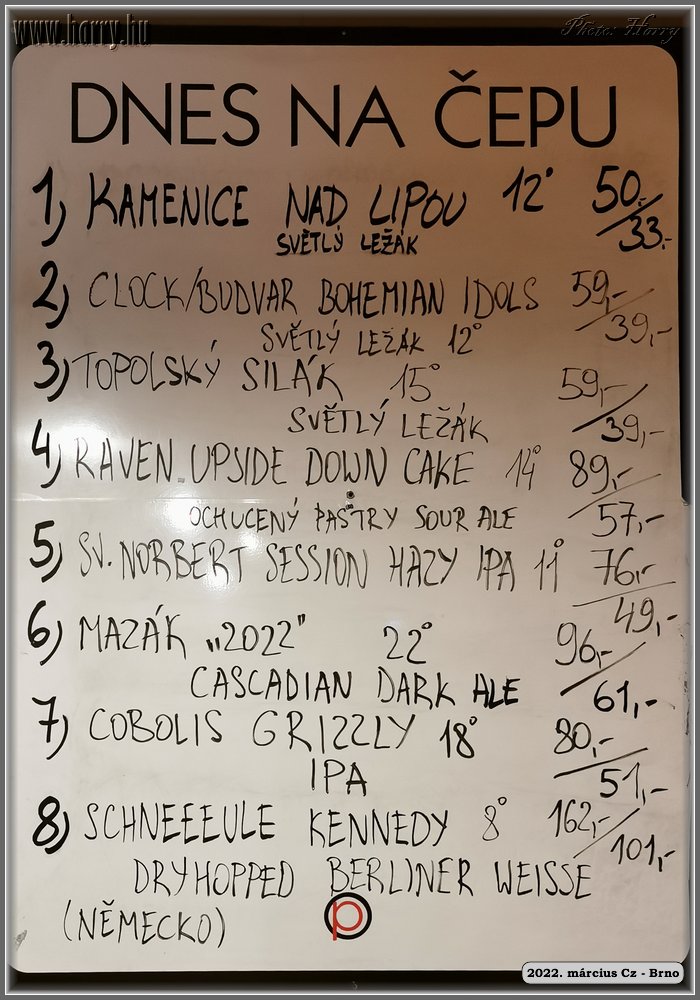 www.harry.hu
Photo: Harry
DNES NA ČEPU
1) KAMENICE NAD LIPOU 12° 50,-
SVĚTLÝ LEŽÁK 33,-
2) CLOCK/BUDVAR BOHEMIAN IDOLS 59,-
SVĚTLÝ LEŽÁK 12° 39,-
3) TOPOLSKÝ SILÁK 15° 59,-
SVĚTLÝ LEŽÁK 39,-
4) RAVEN UPSIDE DOWN CAKE 14° 89,-
OCHUCENÝ PASTRY SOUR ALE 57,-
5) SV. NORBERT SESSION HAZY IPA 11° 76,-
49,-
6) MAZÁK „2022" 22° 96,-
CASCADIAN DARK ALE 61,-
7) COBOLIS GRIZZLY 18° 80,-
IPA 51,-
8) SCHNEEEULE KENNEDY 8° 162,-
101,-
DRYHOPPED BERLINER WEISSE
(NĚMECKO)
2022. március Cz - Brno